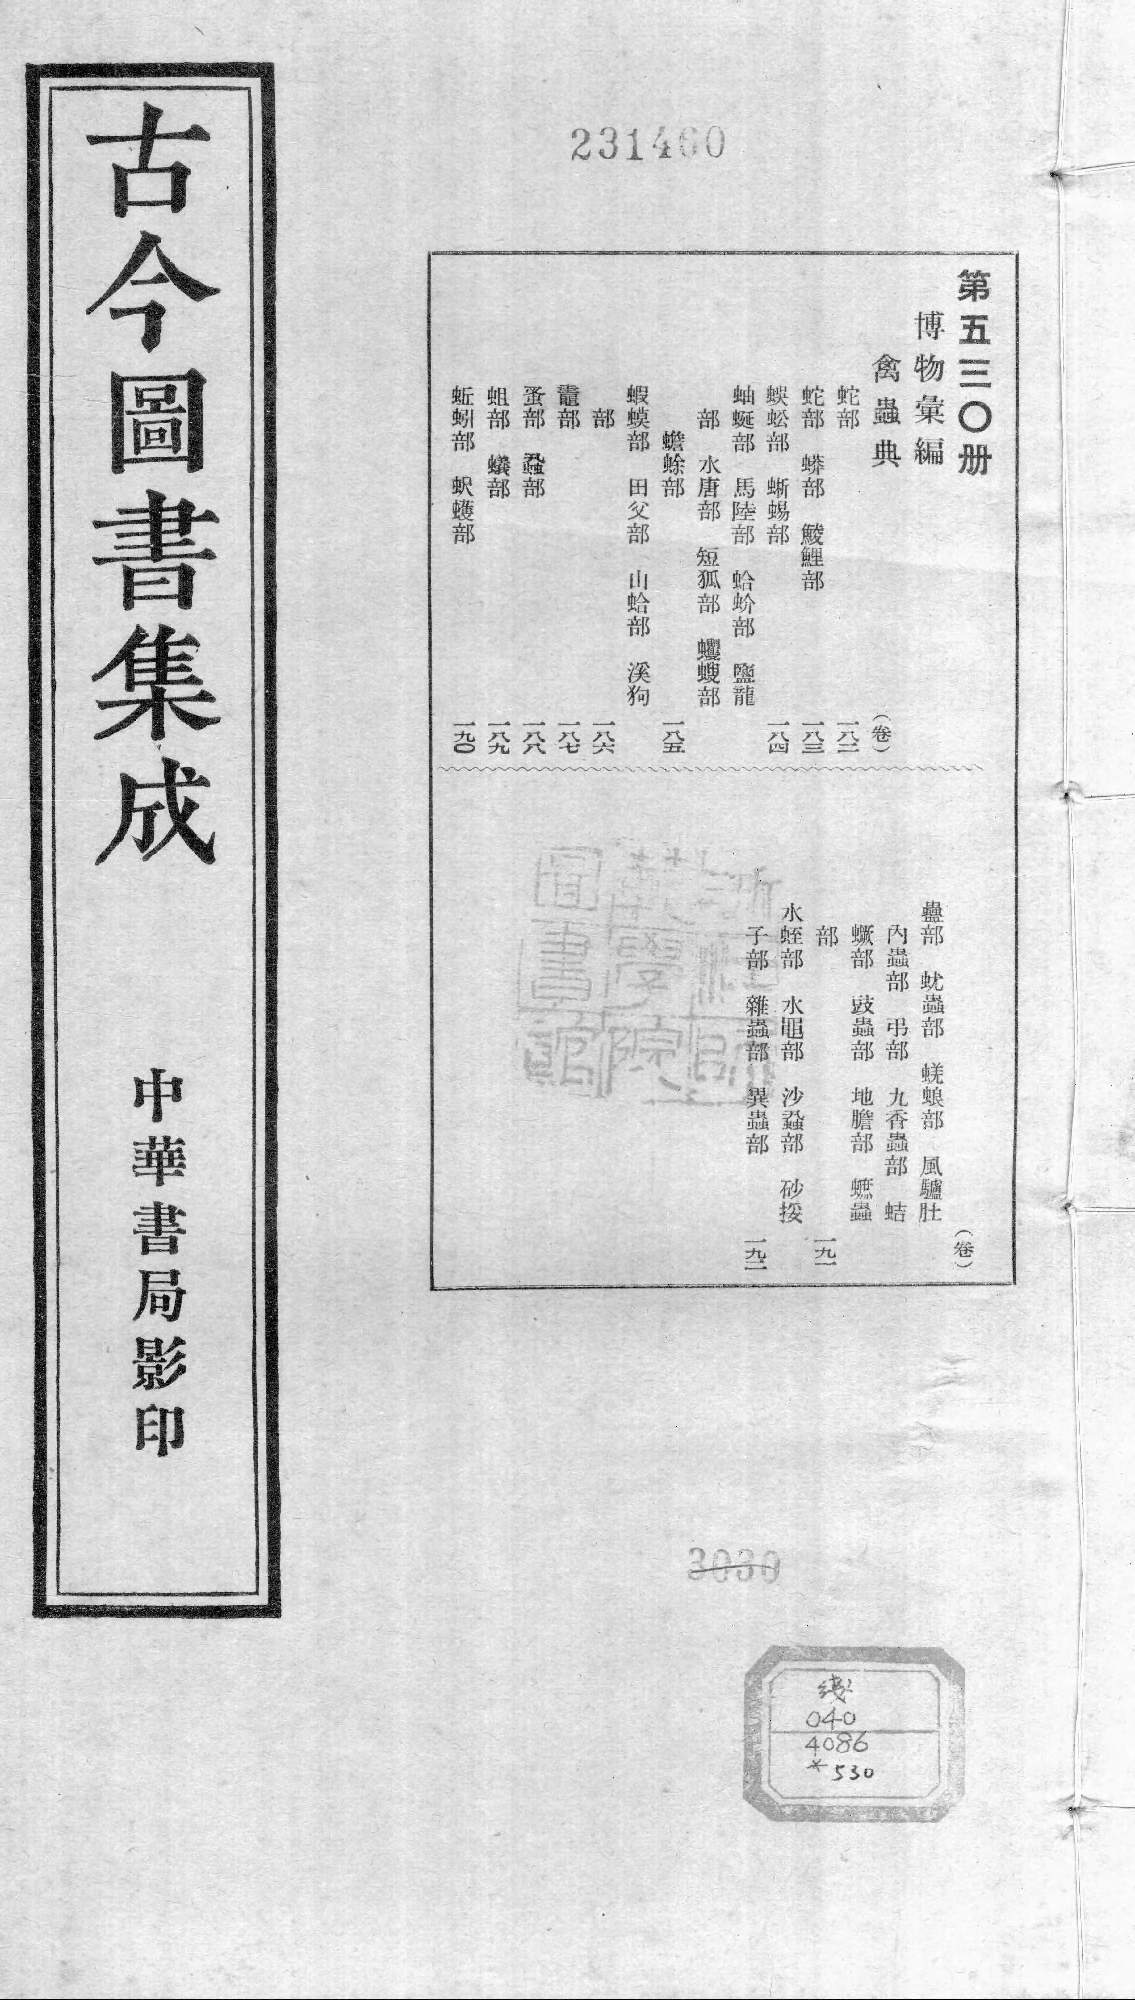 231460
第五三〇册
博物彙編
禽蟲典
(卷)
蛇部 一八二
蛇部 蟒部 鯪鯉部 一八三
蜈蚣部 蜥蜴部 一八四
蚰蜒部 馬陸部 蛤蚧部 鹽龍
部 水唐部 短狐部 蠼螋部
蟾蜍部 一八五
蝦蟆部 田父部 山蛤部 溪狗
部 一八六
鼃部 一八七
蚤部 蝨部 一八八
蛆部 蟻部 一八九
蚯蚓部 蚇蠖部 一九〇
(卷)
蠱部 蚘蟲部 蜣蜋部 風驢肚
內蟲部 弔部 九香蟲部 蛣
蟩部 豉蟲部 地膽部 䗪蟲
部 一九一
水蛭部 水黽部 沙蝨部 砂挼
子部 雜蟲部 異蟲部 一九二
古今圖書集成
中華書局影印
圖書館
學院
3030
綫
040
4086
*530